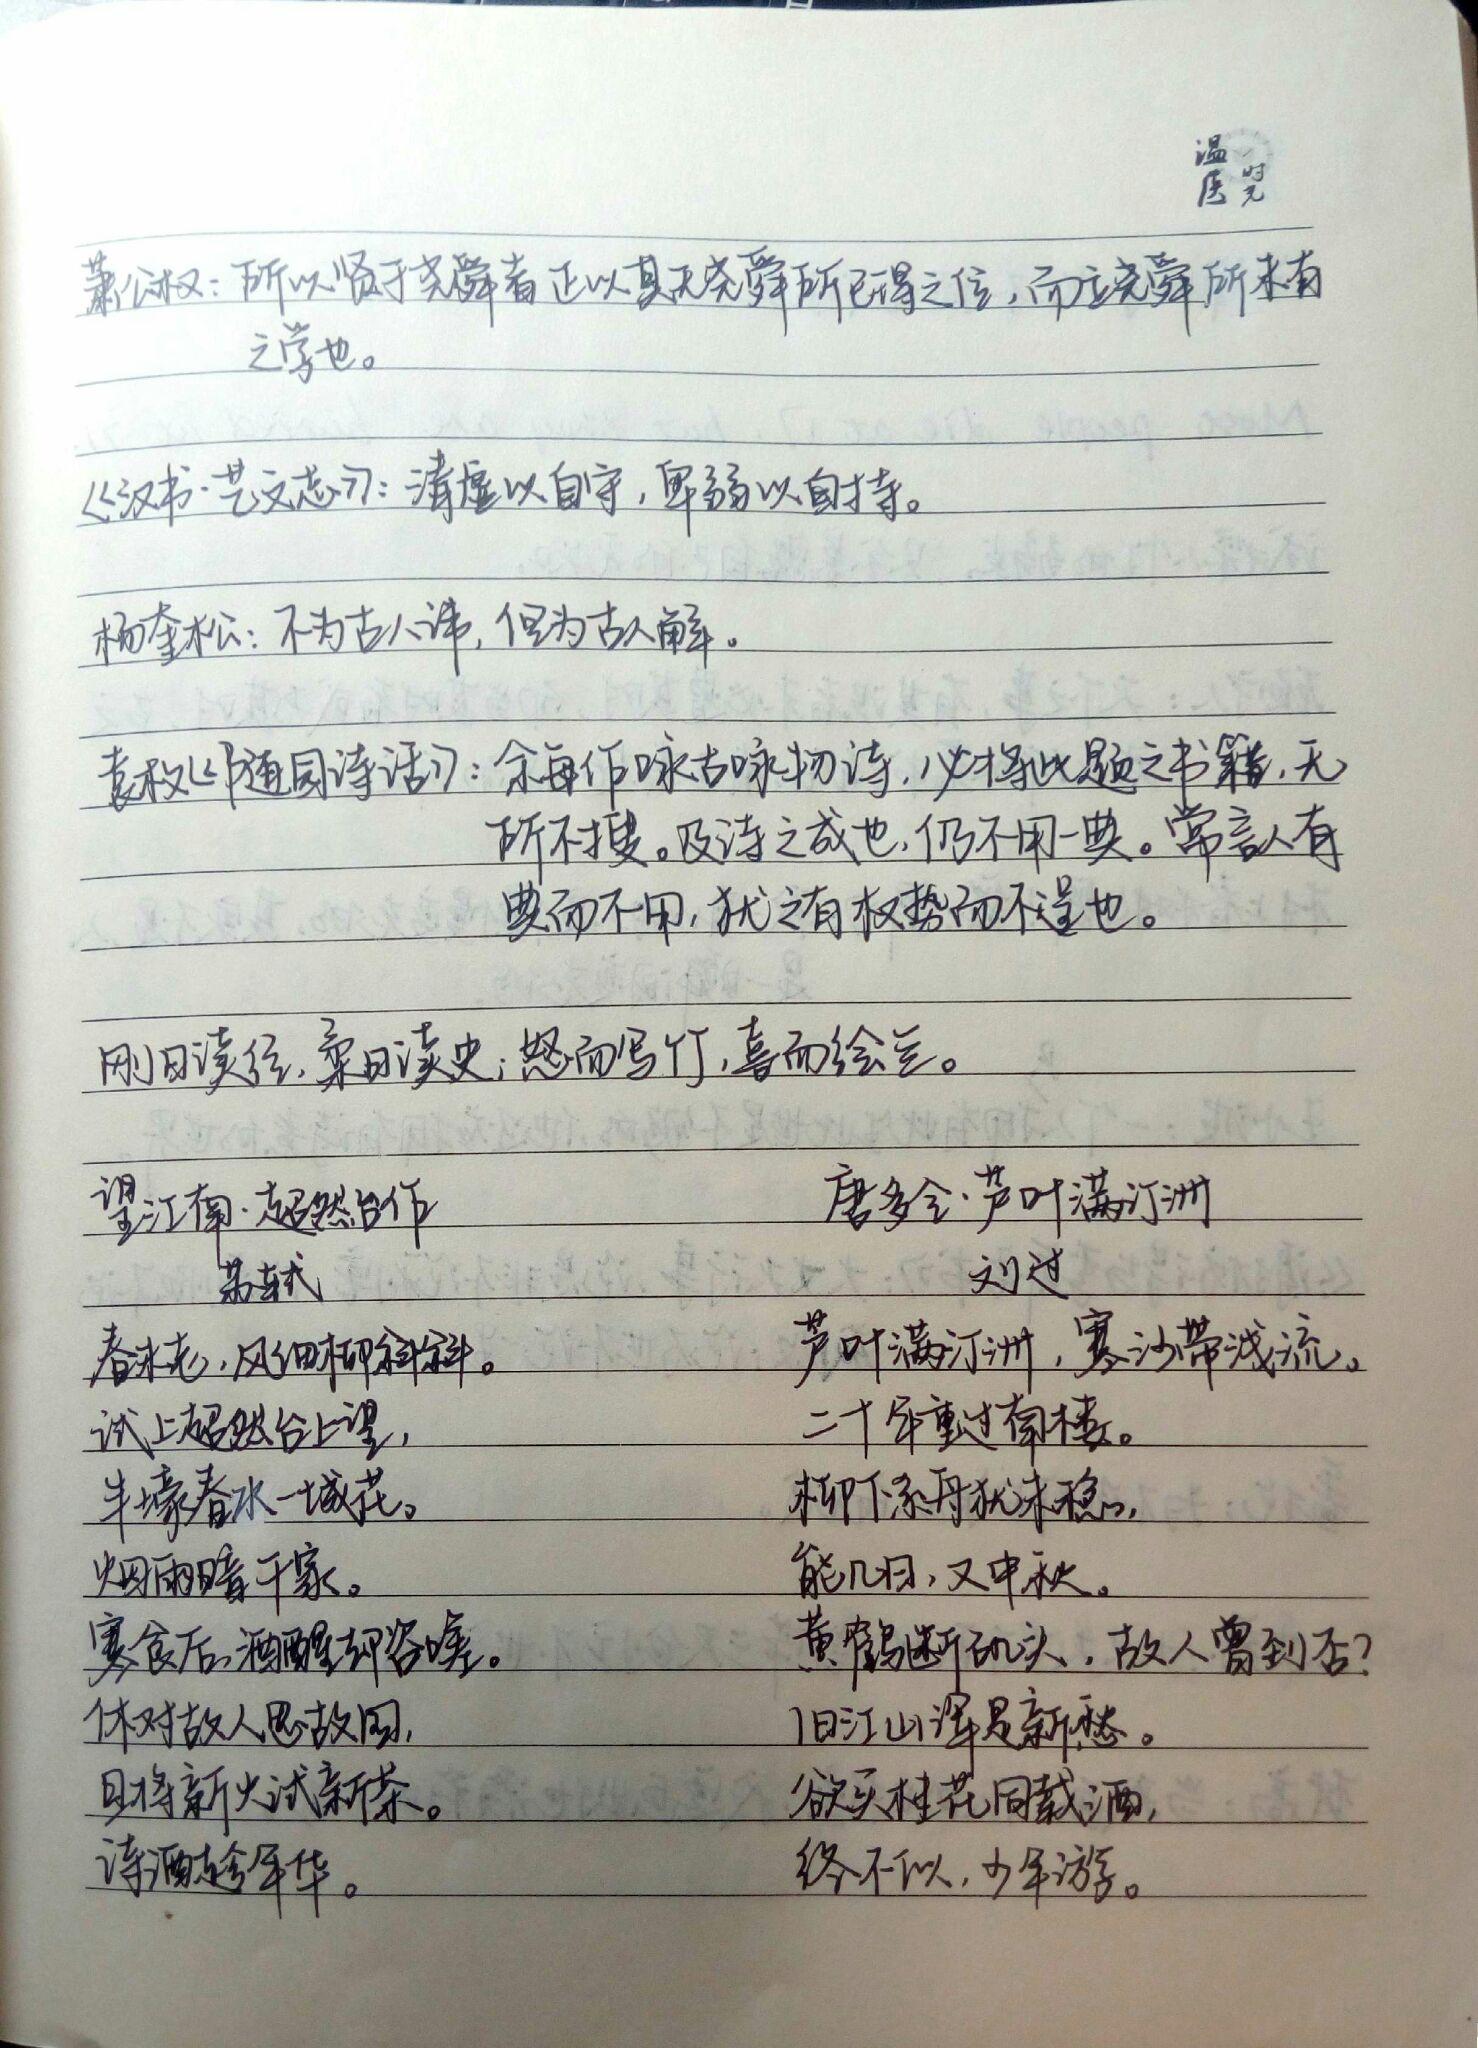 温医
时光
萧公权：所以贤于尧舜者正以其无尧舜所已得之位，而立尧舜所未有
之学也。
《汉书·艺文志》：清虚以自守，卑弱以自持。
杨奎松：不为古人讳，但为古人解。
袁枚《随园诗话》：余每作咏古咏物诗，必将此题之书籍，无
所不搜。及诗之成也，仍不用一典。常言人有
典而不用，犹之有权势而不逞也。
刚日读经，柔日读史；怒而写竹，喜而绘兰。
望江南·超然台作
苏轼
春未老，风细柳斜斜。
试上超然台上望，
半壕春水一城花。
烟雨暗千家。
寒食后，酒醒却咨嗟。
休对故人思故国，
且将新火试新茶。
诗酒趁年华。
唐多令·芦叶满汀洲
刘过
芦叶满汀洲，寒沙带浅流。
二十年重过南楼。
柳下系舟犹未稳，
能几日，又中秋。
黄鹤断矶头，故人曾到否？
旧江山浑是新愁。
欲买桂花同载酒，
终不似，少年游。